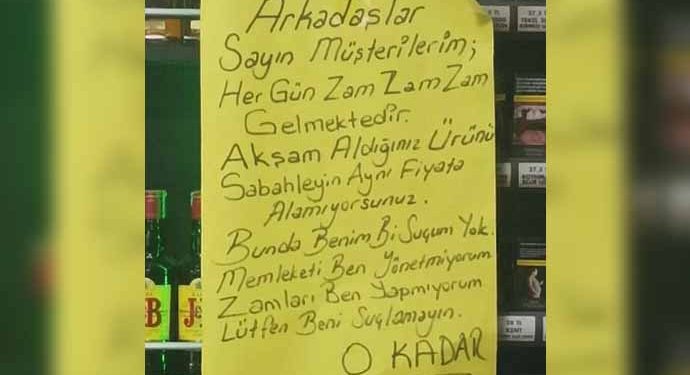 Arkadaşlar
Sayın Müşterilerim;
Her Gün Zam Zam Zam
Gelmektedir.
Akşam Aldığınız Ürünü
Sabahleyin Aynı Fiyata
Alamıyorsunuz.
Bunda Benim Bi Suçum Yok.
Memleketi Ben Yönetmiyorum
Zamları Ben Yapmıyorum
Lütfen Beni Suçlamayın.
O KADAR